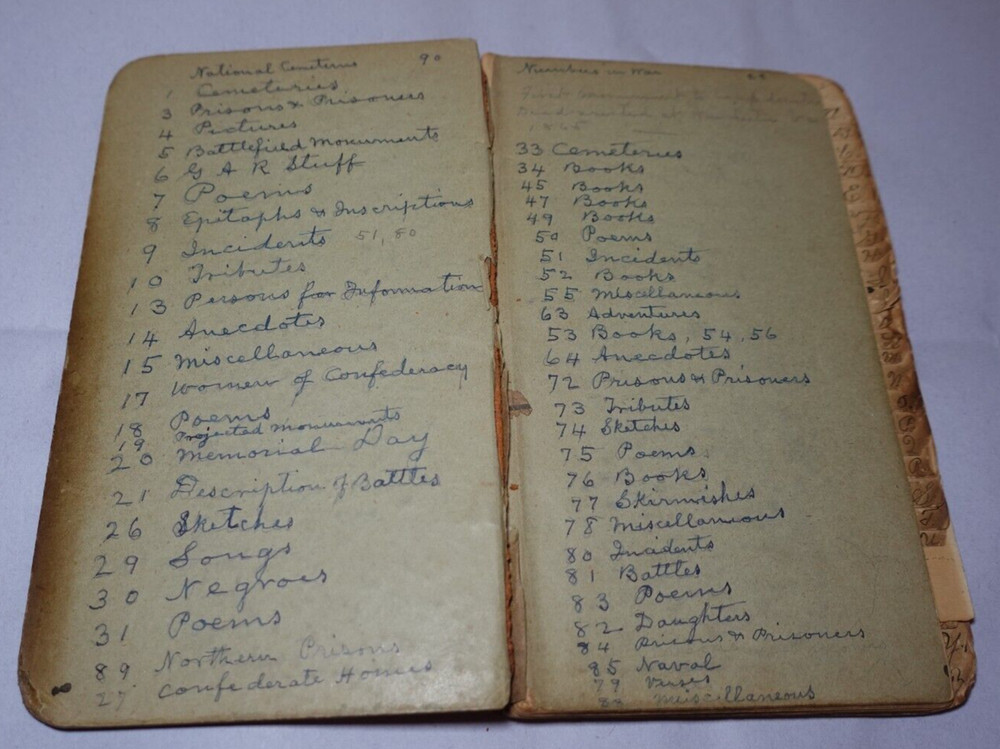 National Cemeteries 90
1 Cemeteries
3 Prisons & Prisoners
4 Pictures
5 Battlefield Monuments
6 G A R Stuff
7 Poems
8 Epitaphs & Inscriptions
9 Incidents 51, 80
10 Tributes
13 Persons for Information
14 Anecdotes
15 Miscellaneous
17 Women of Confederacy
18 Poems
19 Projected Monuments
20 Memorial Day
21 Description of Battles
26 Sketches
29 Songs
30 Negroes
31 Poems
89 Northern Prisons
27 Confederate Homes
Numbers in War
First monument to
at
1865
33 Cemeteries
34 Books
45 Books
47 Books
49 Books
50 Poems
51 Incidents
52 Books
55 Miscellaneous
63 Adventures
53 Books, 54, 56
64 Anecdotes
72 Prisons & Prisoners
73 Tributes
74 Sketches
75 Poems
76 Books
77 Skirmishes
78 Miscellaneous
80 Incidents
81 Battles
83 Poems
82 Daughters
84 Prisons & Prisoners
85 Naval
79
Miscellaneous